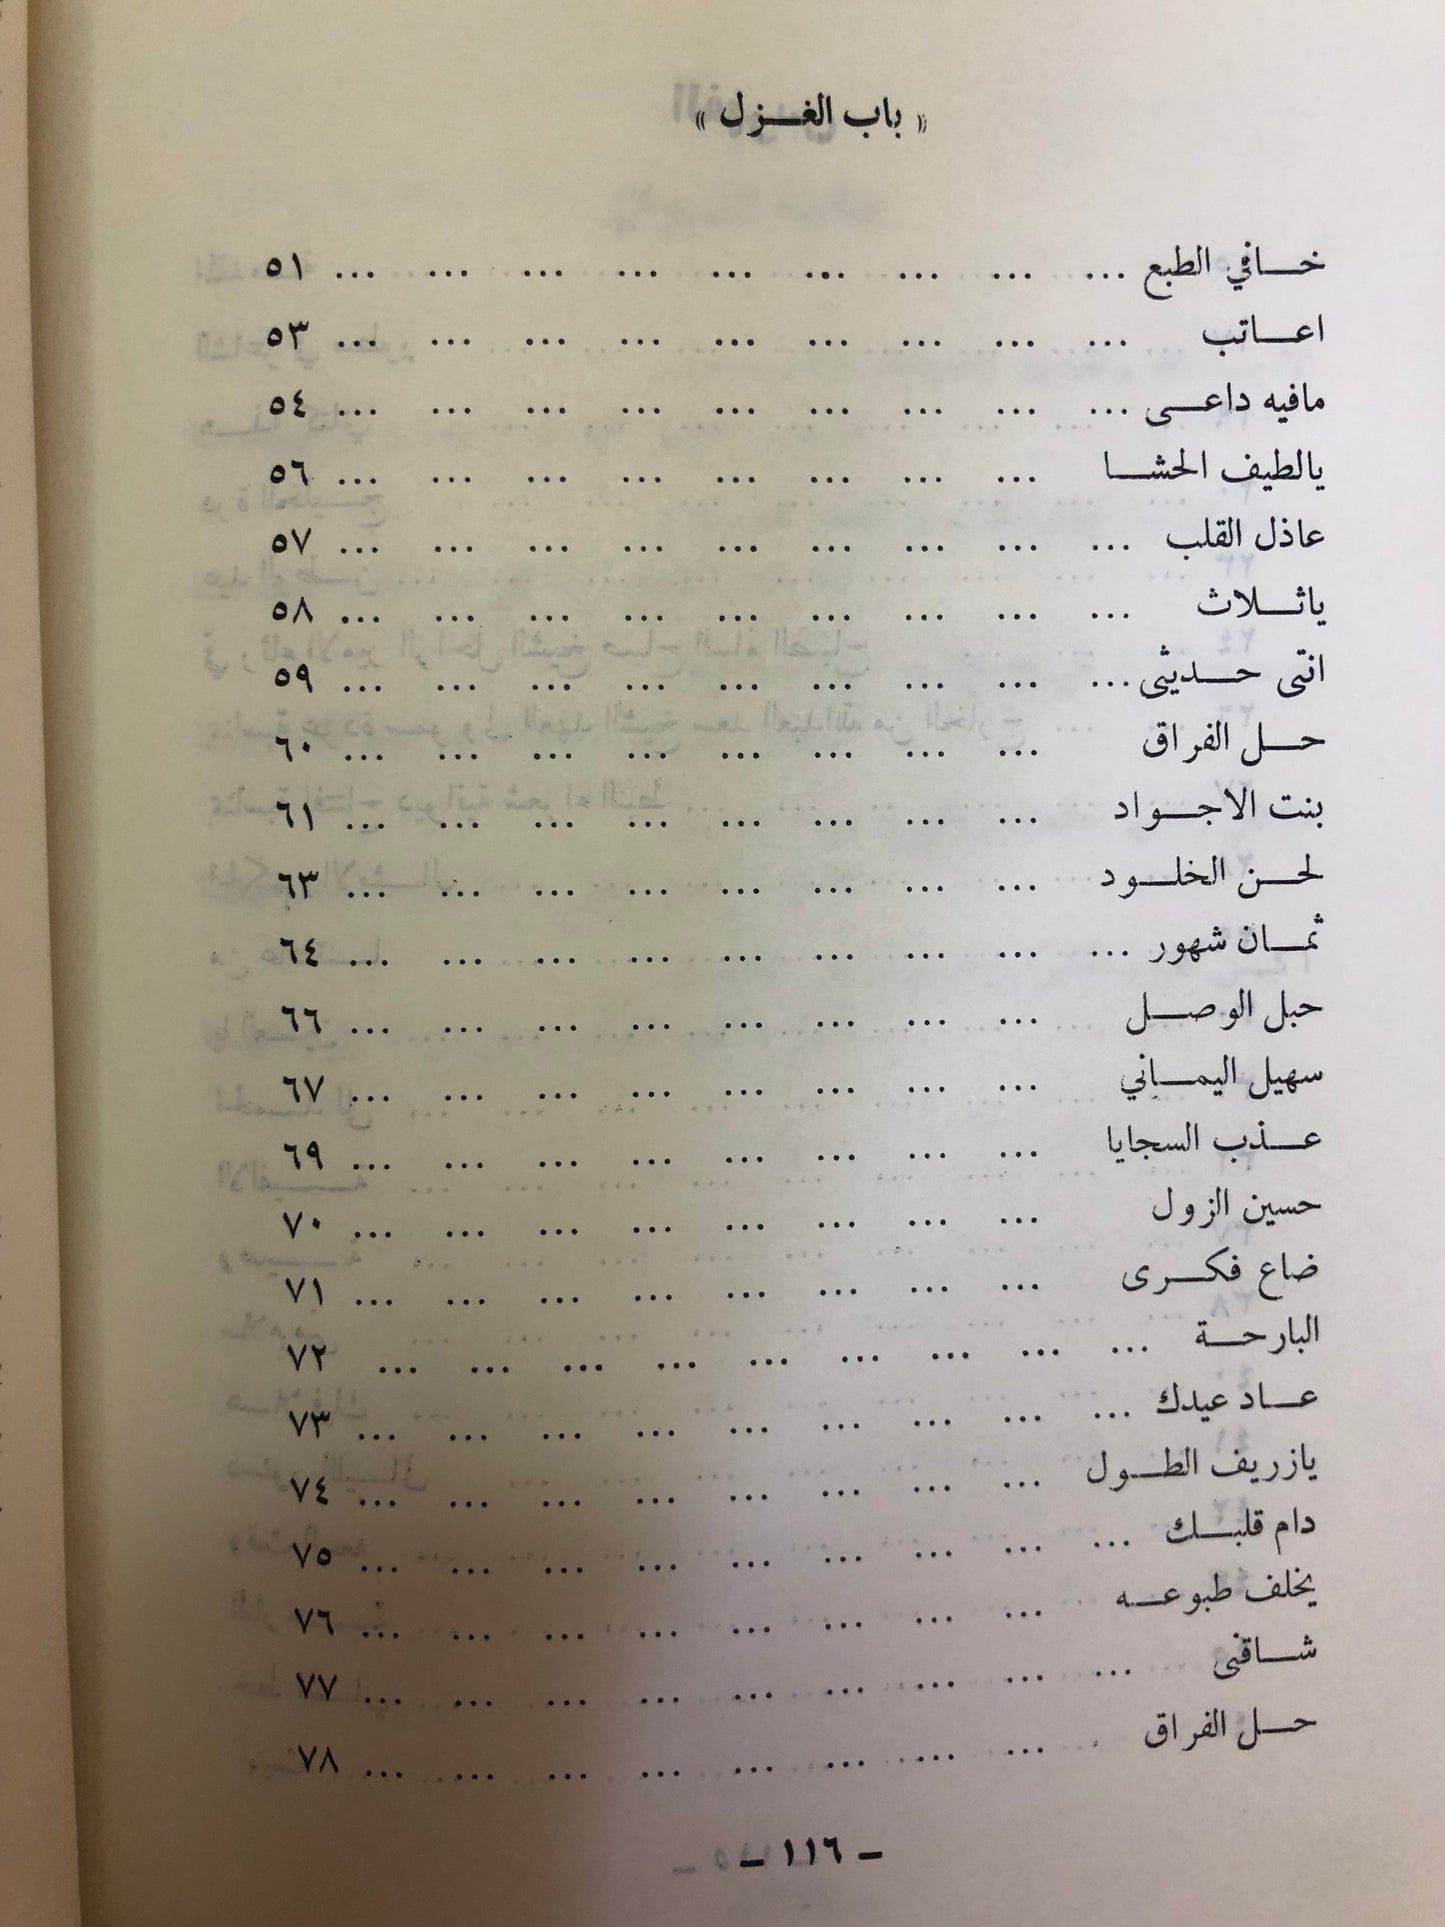 « باب الغـــزل »
خـــافي الطبع ... ... ... ... ... ... ... ... ... ٥١
اعـــاتب ... ... ... ... ... ... ... ... ... ٥٣
مافيه داعـــى ... ... ... ... ... ... ... ... ... ٥٤
يالطيف الحشـــا ... ... ... ... ... ... ... ... ٥٦
عاذل القلب ... ... ... ... ... ... ... ... ... ٥٧
ياثـــلاث ... ... ... ... ... ... ... ... ... ٥٨
انتى حـــديثى ... ... ... ... ... ... ... ... ... ٥٩
حـــل الفراق ... ... ... ... ... ... ... ... ٦٠
بنت الاجـــواد ... ... ... ... ... ... ... ... ٦١
لحـــن الخلـــود ... ... ... ... ... ... ... ... ٦٣
ثمـــان شهور ... ... ... ... ... ... ... ... ... ٦٤
حبل الوصـــل ... ... ... ... ... ... ... ... ٦٦
سهيل اليمـــاني ... ... ... ... ... ... ... ... ٦٧
عـــذب السجايا ... ... ... ... ... ... ... ... ٦٩
حسين الزول ... ... ... ... ... ... ... ... ٧٠
ضاع فكـــرى ... ... ... ... ... ... ... ... ٧١
البارحـــة ... ... ... ... ... ... ... ... ... ٧٢
عـــاد عيدك ... ... ... ... ... ... ... ... ... ٧٣
يازريف الطـــول ... ... ... ... ... ... ... ... ٧٤
دام قلبـــك ... ... ... ... ... ... ... ... ... ٧٥
يخلف طبوعـــه ... ... ... ... ... ... ... ... ٧٦
شـــاقنى ... ... ... ... ... ... ... ... ... ٧٧
حـــل الفراق ... ... ... ... ... ... ... ... ٧٨
ــ ١١٦ ــ